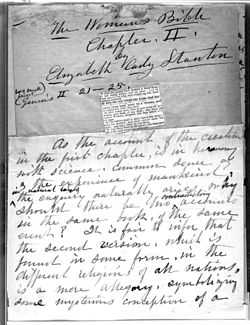 The Woman's Bible
Chapter II.
by
Elizabeth Cady Stanton
Genesis II 21-25.
As the account of the creation
in the first chapter, is in harmony
with science, common sense, &
the experience of mankind
in natural laws
the enquiry naturally arises, why
should there be two contradictory accounts
in the same book, of the same
event? It is fair to infer that
the second version, which is
found in some form, in the
different religions of all nations,
is a mere allegory, symbolizing
some mysterious conception of a